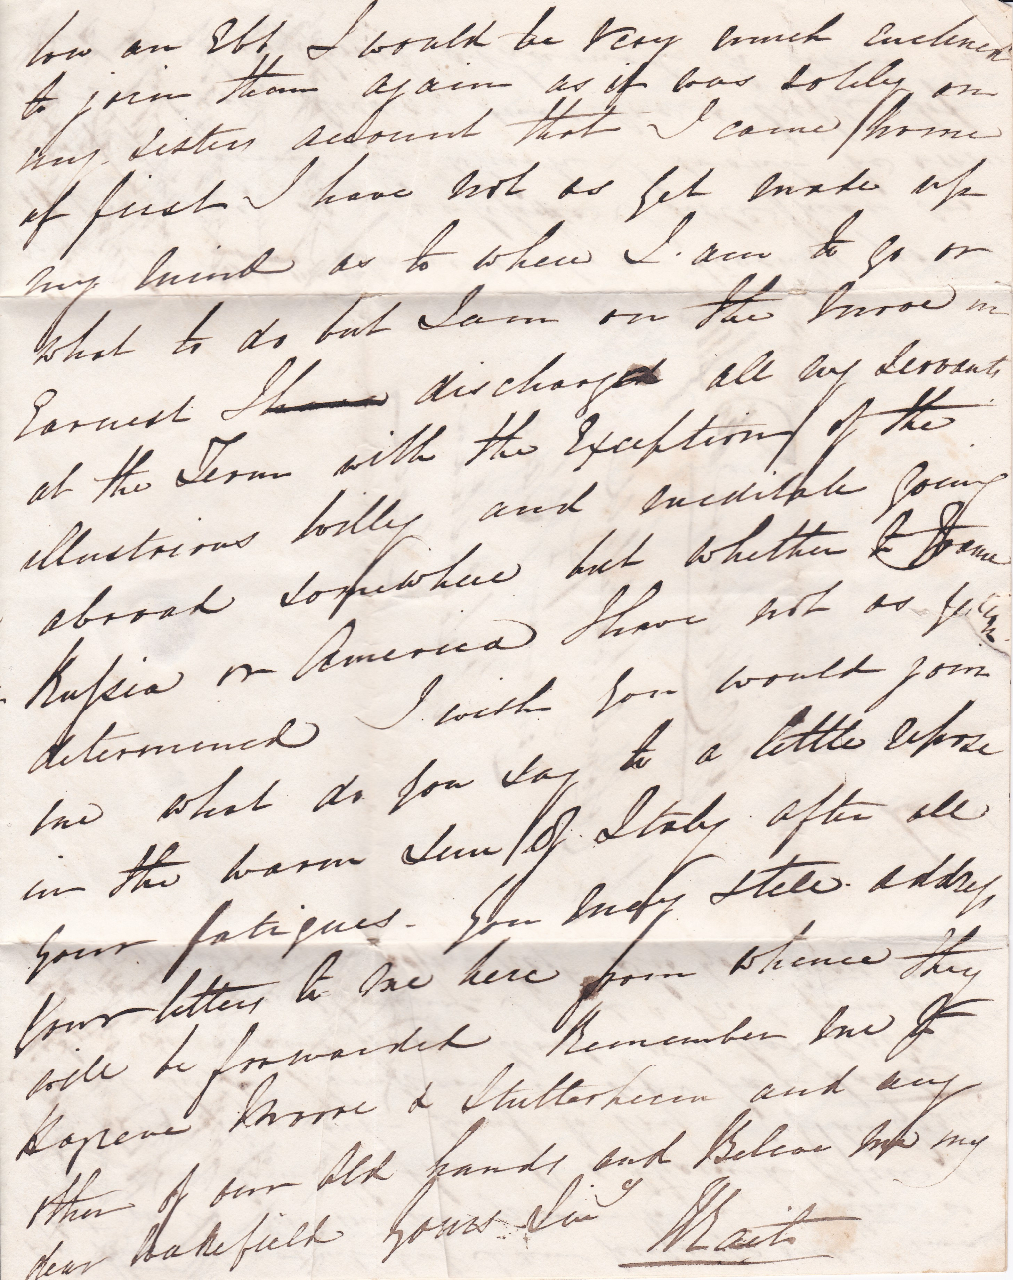 low an Ebb, I would be very much Enclined
to join them again as it was solely on
my sisters account that I came home
at first I have not as yet made up
my mind as to where I am to go or
what to do but I am on the move in
Earnest I have discharged all my Servants
at the Term with the Exception of the
illustrious Willy and meditate going
abroad somewhere but whether to
Russia or America I have not as yet
determined I wish you would join
me what do you say to a little repose
in the warm Sun of Italy after all
your fatigues. You may still address
your letters to me here from whence they
will be forwarded Remember me to
Hogreve Moore & Stutterheim and any
other of our old hands and Believe me my
dear Wakefield Yours Sinly